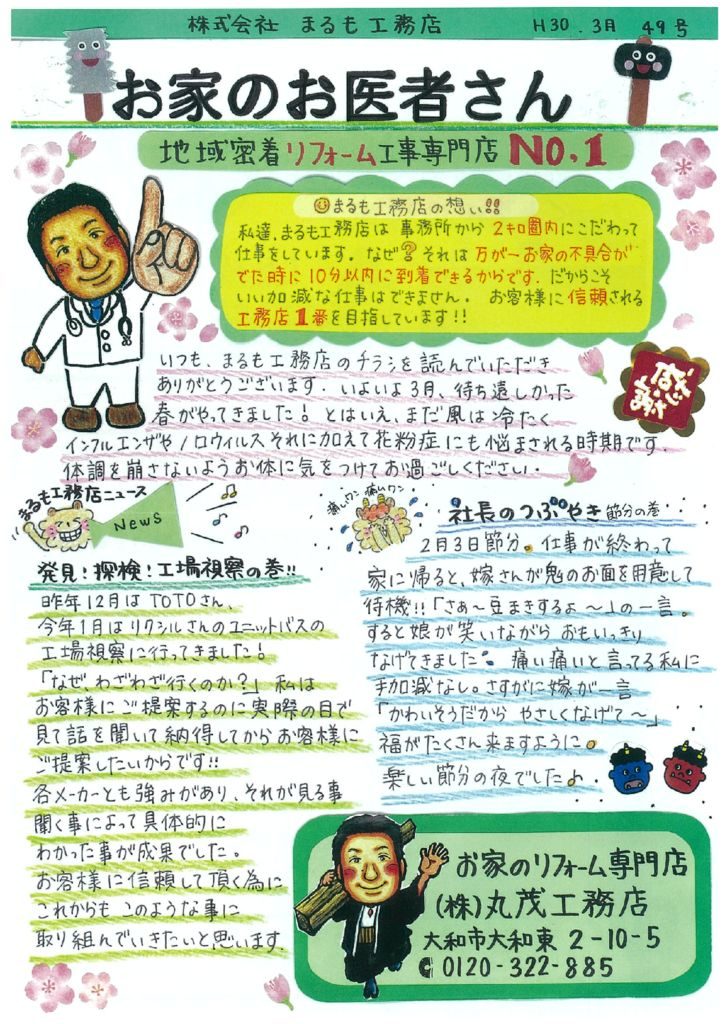 株式会社 まるも工務店 H30.3月 49号
お家のお医者さん
地域密着リフォーム工事専門店 NO.1
まるも工務店の想い!!
私達、まるも工務店は 事務所から 2キロ圏内にこだわって
仕事をしています。なぜ?それは 万が一お家の不具合が
でた時に 10分以内に到着できるからです。だからこそ
いい加減な仕事はできません。 お客様に信頼される
工務店1番を目指しています!!
いつも、まるも工務店のチラシを読んでいただき
ありがとうございます。いよいよ3月、待ち遠しかった
春がやってきました! とはいえ、まだ風は冷たく
インフルエンザやノロウィルスそれに加えて花粉症にも悩まされる時期です。
体調を崩さないようお体に気をつけてお過ごしください。
まるも工務店ニュース
News
発見!探検!工場視察の巻!!
昨年12月はTOTOさん、
今年1月はリクシルさんのユニットバスの
工場視察に行ってきました!
「なぜ、わざわざ行くのか?」私は
お客様にご提案するのに実際の目で
見て話を聞いて納得してからお客様に
ご提案したいからです!!
各メーカーとも強みがあり、それが見る事
聞く事によって具体的に
わかった事が成果でした。
お客様に信頼して頂く為に
これからもこのような事に
取り組んでいきたいと思います。
痛いワン 痛いワン
社長のつぶやき 節分の巻
2月3日節分。仕事が終わって
家に帰ると、嫁さんが鬼のお面を用意して
待機!!「さぁ〜豆まきするよ〜」の一言。
すると娘が笑いながら おもいっきり
なげてきました 痛い痛いと言ってる私に
手加減なし。さすがに嫁が一言
「かわいそうだから やさしくなげて〜」
福がたくさん来ますように。
楽しい節分の夜でした♪
お家のリフォーム専門店
(株)丸茂工務店
大和市大和東 2-10-5
0120-322-885